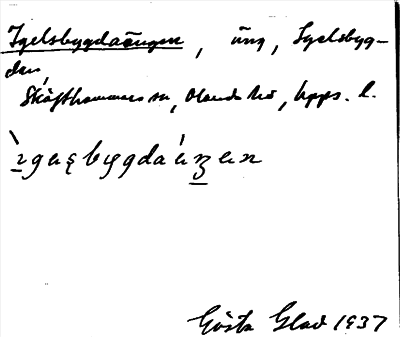 Igelsbygdaängen, äng, Igelsbyg-
den,
Skäfthammars sn, Olands hd, Upps. l.
Gösta Glad 1937